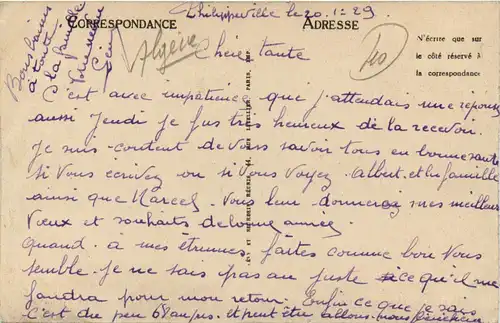 Philippeville le 20.1.29.
CORRESPONDANCE
ADRESSE
Algérie
10
N'écrire que sur
le côté réservé à
la correspondance
Bons baisers
à toute
la famille
Chère tante
C'est avec impatience que j'attendais une réponse
aussi Jeudi je fus très heureux de la recevoir.
Je suis content de vous savoir tous en bonne santé
si vous écrivez ou si vous voyez Albert et la famille
ainsi que Marcel. Vous leur donnerez mes meilleurs
voeux et souhaits de bonne année
Quand à mes étrennes faites comme bon vous
semble. Je ne sais pas au juste ce qu'il me
faudra pour mon retour. Enfin ce que je sais
c'est du peu et peut être allons nous bénéficier
LEVY ET NEURDEIN RÉUNIS, 44, RUE LETELLIER, PARIS, IMP.